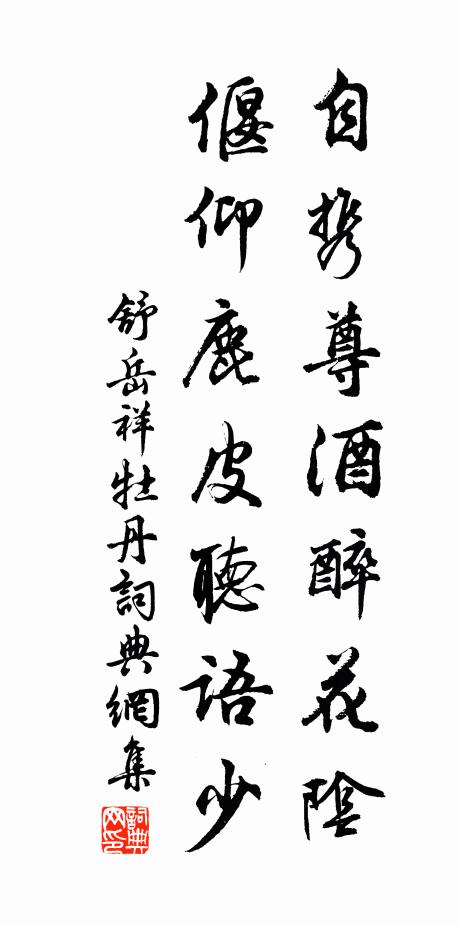 自携尊酒醉花陰
偃仰鹿皮聽語少
舒岳祥牡丹詞典網集
詞典网印